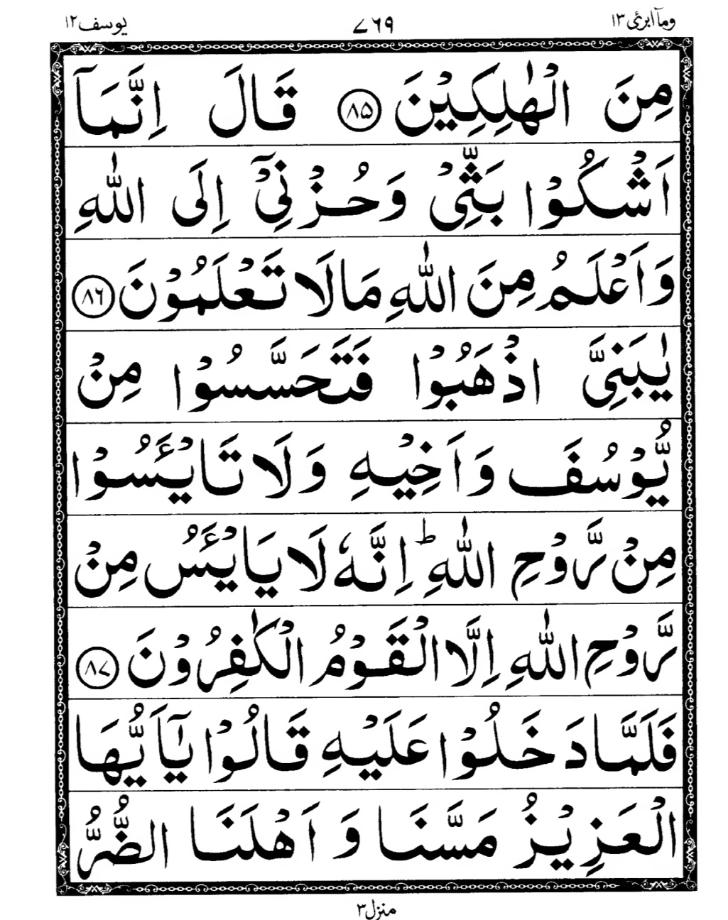 وماۤ ابرئ ١٣ ٧٦٩ یوسف ١٢
مِنَ الْهٰلِكِیْنَ ﴿٨٥﴾ قَالَ اِنَّمَاۤ
اَشْكُوْا بَثِّیْ وَحُزْنِیْۤ اِلَی اللّٰهِ
وَاَعْلَمُ مِنَ اللّٰهِ مَالَا تَعْلَمُوْنَ ﴿٨٦﴾
یٰبَنِیَّ اذْهَبُوْا فَتَحَسَّسُوْا مِنْ
یُّوْسُفَ وَاَخِیْهِ وَلَا تَایْـَٔسُوْا
مِنْ رَّوْحِ اللّٰهِ ؕ اِنَّهٗ لَا یَایْـَٔسُ مِنْ
رَّوْحِ اللّٰهِ اِلَّا الْقَوْمُ الْكٰفِرُوْنَ ﴿٨٧﴾
فَلَمَّا دَخَلُوْا عَلَیْهِ قَالُوْا یٰۤاَیُّهَا
الْعَزِیْزُ مَسَّنَا وَ اَهْلَنَا الضُّرُّ
منزل ٣